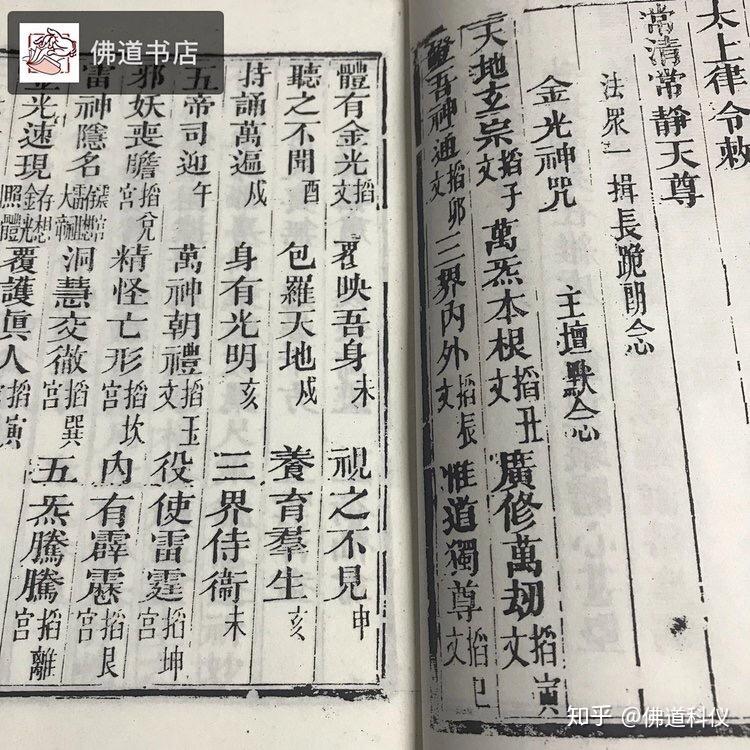 佛道书店
太上律令敕
常清常靜天尊
法眾一揖長跪朗念
金光神咒 主壇默念
天地玄宗掐子文 萬炁本根掐丑文 廣修萬劫掐寅文
證吾神通掐卯文 三界內外掐辰文 惟道獨尊掐巳文
體有金光掐文 覆映吾身未 視之不見申
聽之不聞酉 包羅天地戌 養育羣生亥
持誦萬遍戌 身有光明亥 三界侍衞未
五帝司迎午 萬神朝禮掐玉文 役使雷霆掐坤宮
邪妖喪膽掐兌宮 精怪亡形掐坎宮 內有霹靂掐艮宮
雷神隱名 洞慧交徹掐巽宮 五炁騰騰掐離宮
金光速現存想金光照體 覆護眞人掐寅
知乎 @佛道科仪